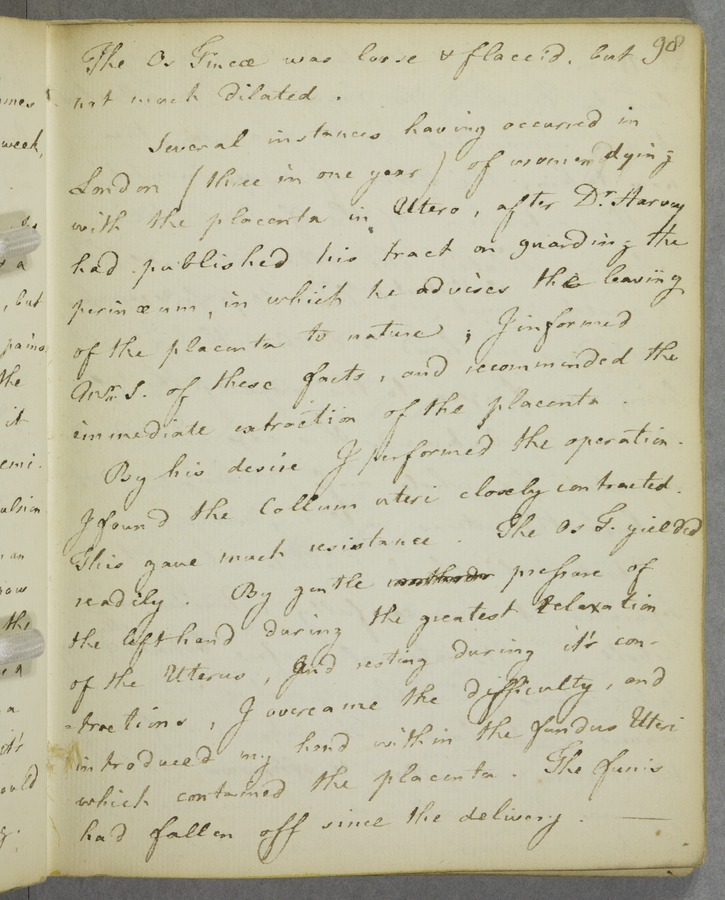 98
The Os Tincæ was loose & flaccid, but
not much dilated.
Several instances having occurred in
London (three in one year) of women dying
with the placenta in Utero, after Dr. Harvey
had published his tract on guarding the
perinæum, in which he advises the leaving
of the placenta to nature; I informed
Mr. S. of these facts, and recommended the
immediate extraction of the placenta.
By his desire I performed the operation.
I found the Collum uteri closely contracted.
This gave much resistance. The Os T. yielded
readily. By gentle pressure of
the left hand during the greatest relaxation
of the Uterus, and resting during it's con-
-tractions, I overcame the difficulty, and
introduced my hand within the fundus Uteri
which contained the placenta. The funis
had fallen off since the delivery. —
week,
, but
pains
the
it
emi-
ulsion
an
the
a
it's
ould